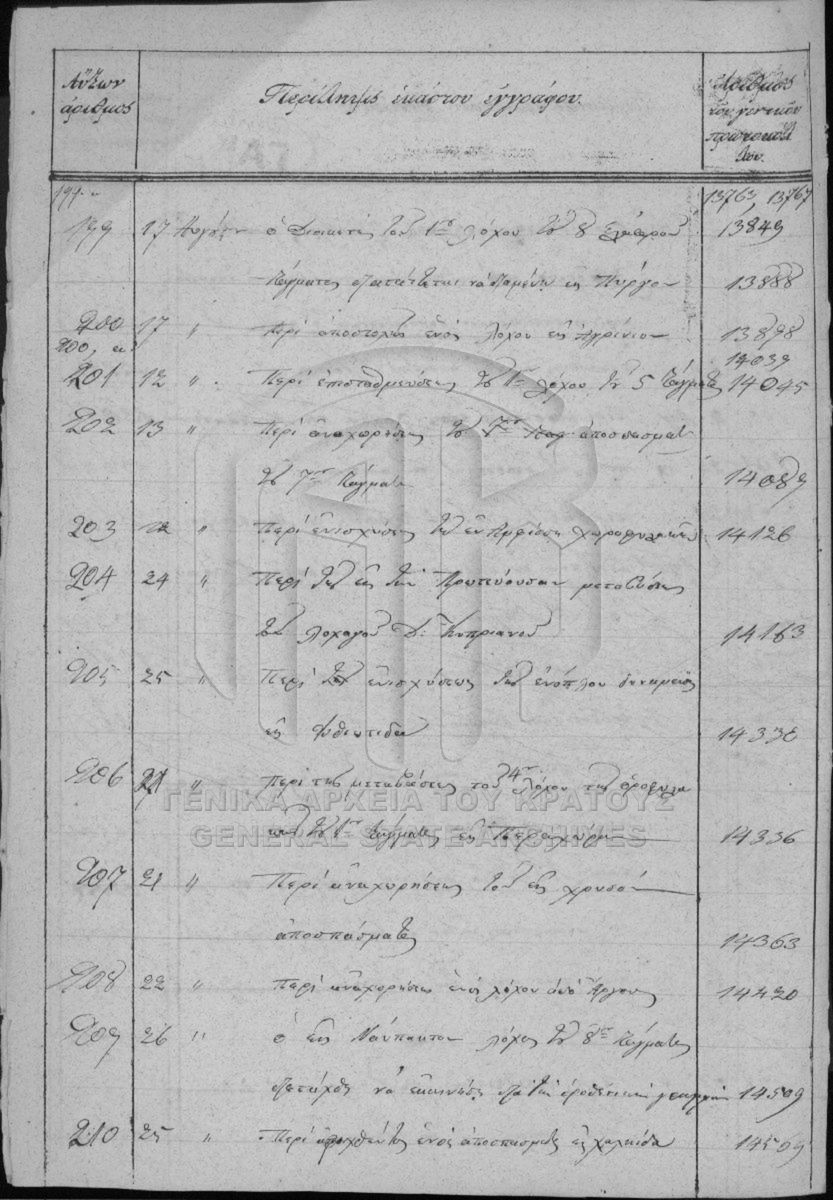 Αὔξων ἀριθμος
Περίληψις ἑκάστου ἐγγράφου.
Ἀριθμος του γενικοῦ πρωτοκόλλου.
13763, 13767
199 17 Αυγούστ ὁ Διοικητὴς τοῦ 1ου λόχου τοῦ 8 Ἐλαφροῦ 13849
Τάγματος διατάττεται νὰ διαμένῃ εἰς Πύργον 13888
200 17 " Περὶ ἀποστολῆς ἑνὸς λόχου εἰς Ἀγρίνιον 13898
200, α 14039
201 12 " Περὶ ἐπισταθμεύσεως τοῦ 1ου λόχου τοῦ 5 Τάγματος 14045
202 13 " Περὶ ἀναχωρήσεως τοῦ ἀποσπάσματ
τοῦ 7ου Τάγματο 14089
203 " Περὶ ἐνισχύσεως τῶν ἐν Ἀμφίσσῃ χωροφυλακῶν 14126
204 24 " Περὶ τῆς εἰς τὴν Πρωτεύουσαν μεταβάσεως
τοῦ λοχαγοῦ Δ: Κυπριανοῦ 14163
205 25 " Περὶ τῆς ἐνισχύσεως τῆς ἐνόπλου δυναμεως
εἰς Φθιωτιδα 14330
206 21 " Περὶ της μεταβάσεως του 4ου λόχου της ὁροφυλα
τοῦ 1ου Τάγματος εἰς 14336
207 21 " Περὶ ἀναχωρήσεως τοῦ εἰς χρυσὸ
ἀποσπάσματος 14363
208 22 " Περὶ ἀναχορήσεως ἑνὸς λόχου ἀπὸ Ἄργους 14420
209 26 " ὁ εἰς Ναύπακτον λόχος τοῦ 8ου Τάγματος
διετάχθη νὰ ἐκκινήσῃ διὰ τὴν ὁροθετικὴν γραμμὴν 14509
210 25 " Περὶ ἑνὸς ἀποσπάσματος εἰς χαλκίδα 14599
ΓΕΝΙΚΑ ΑΡΧΕΙΑ ΤΟΥ ΚΡΑΤΟΥΣ
GENERAL STATE ARCHIVES